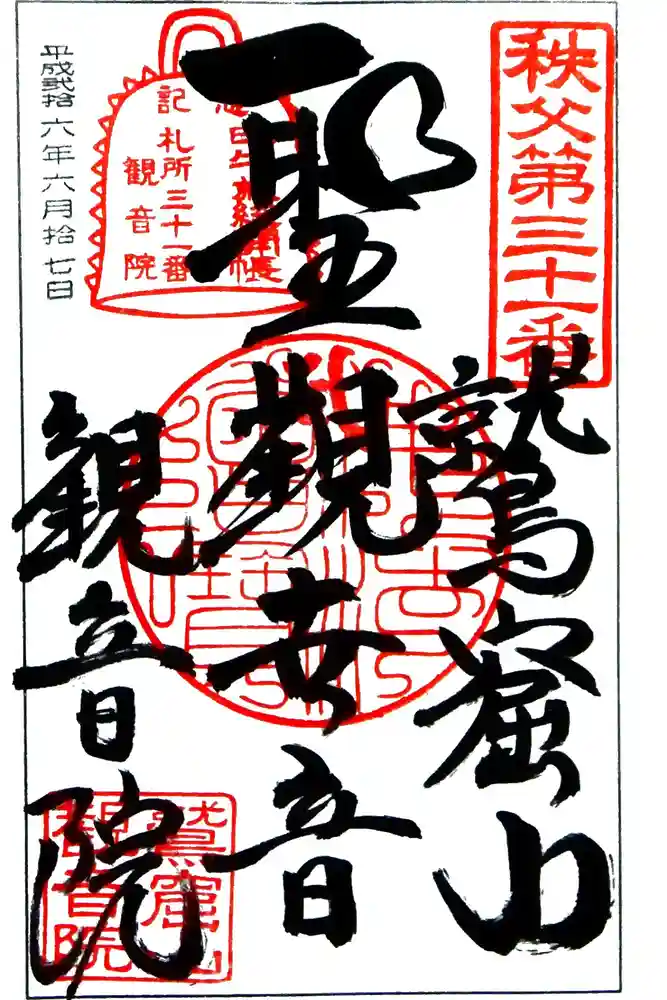 秩父第三十一番
鷲窟山
聖觀世音
記
札所三十一番
観音院
観音院
平成弐拾六年六月拾七日
鷲窟山
觀音院